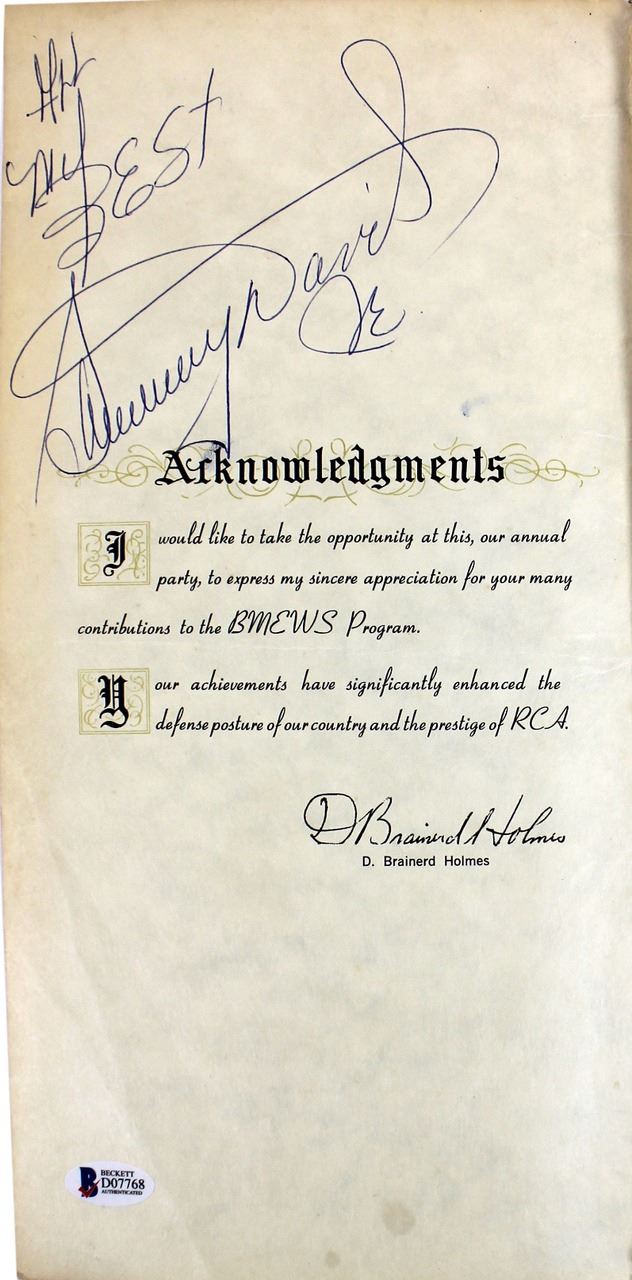 All
My
Best
Sammy Davis
Jr
Acknowledgments
I would like to take the opportunity at this, our annual
party, to express my sincere appreciation for your many
contributions to the BMEWS Program.
Your achievements have significantly enhanced the
defense posture of our country and the prestige of RCA.
D Brainerd Holmes
D. Brainerd Holmes
BECKETT
D07768
AUTHENTICATED